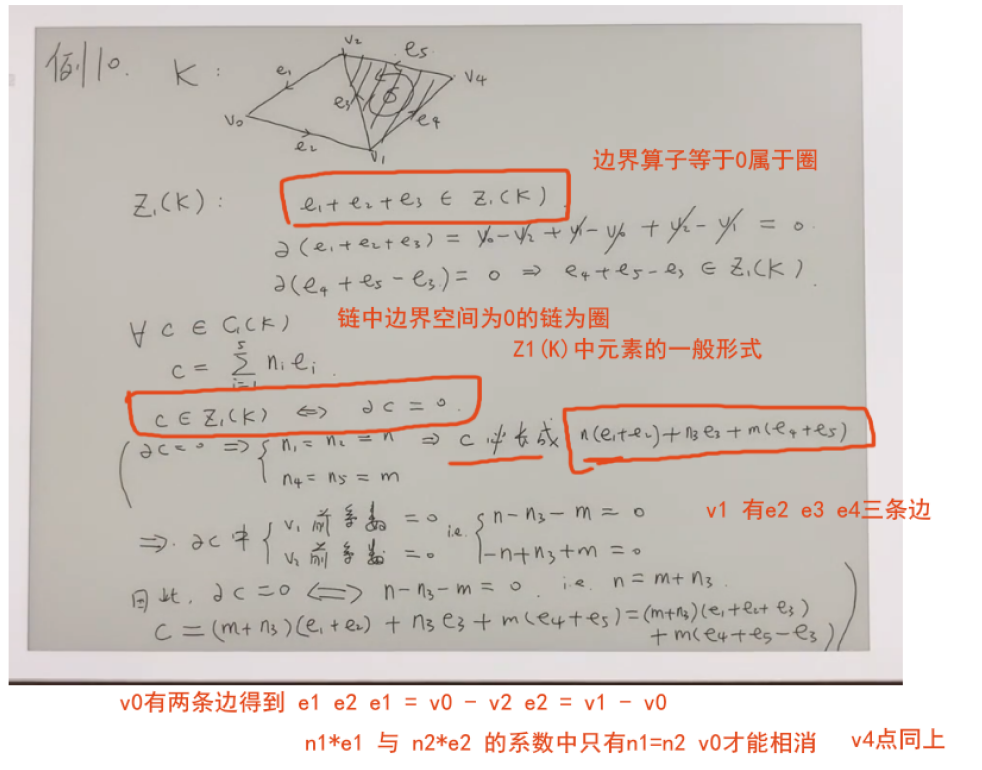 例10. K:
v2 e5
e1 v4
v0 e3 e4
e2 v1
边界算子等于0属于圈
Z₁(K): e₁+e₂+e₃ ∈ Z₁(K)
∂(e₁+e₂+e₃) = v₀-v₂+v₁-v₀+v₂-v₁ = 0.
∂(e₄+e₅-e₃) = 0 ⇒ e₄+e₅-e₃ ∈ Z₁(K).
∀ c ∈ C₁(K) 链中边界空间为0的链为圈
c = Σ_{i=1}^{5} nᵢeᵢ. Z1(K)中元素的一般形式
c ∈ Z₁(K) ⇔ ∂c = 0.
(∂c=0 ⇒ { n₁=n₂=n ⇒ c必长成 n(e₁+e₂)+n₃e₃+m(e₄+e₅)
n₄=n₅=m
v1 有e2 e3 e4三条边
⇒. ∂c中 { v₁前系数=0 i.e. { n-n₃-m=0
v₂前系数=0 -n+n₃+m=0
因此, ∂c=0 ⇔ n-n₃-m=0. i.e. n=m+n₃.
c=(m+n₃)(e₁+e₂)+n₃e₃+m(e₄+e₅)=(m+n₃)(e₁+e₂+e₃)
+m(e₄+e₅-e₃))
v0有两条边得到 e1 e2 e1 = v0 - v2 e2 = v1 - v0
n1*e1 与 n2*e2 的系数中只有n1=n2 v0才能相消 v4点同上